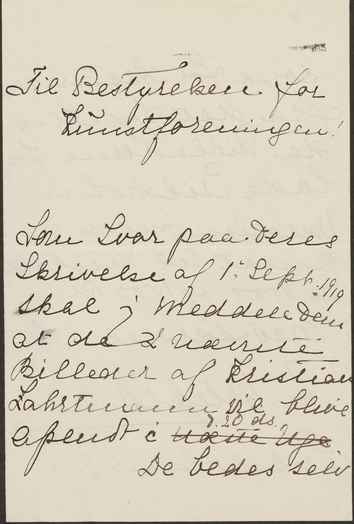 Til Bestyrelsen for
Kunstforeningen!
Som Svar paa Deres
Skrivelse af 1ᵗ Sept. 1919
skal j meddele Dem
at de 2 nævnte
Billeder af Kristian
Zahrtmann vil blive
d. 30 ds.
afsendt i næste Uge
De bedes selv